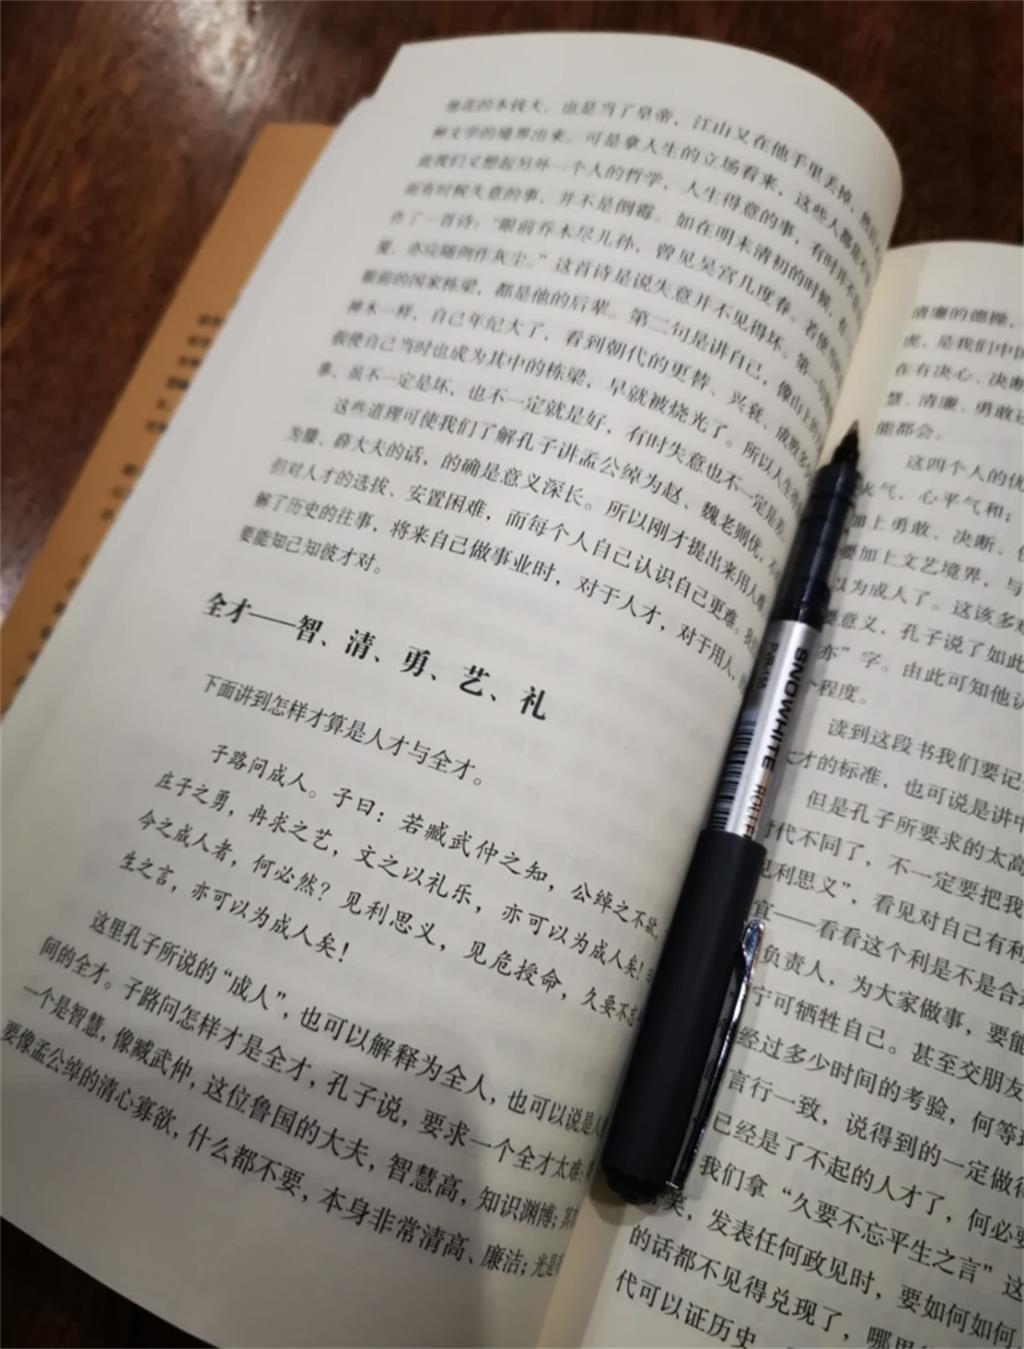 他花的本钱大，也是当了皇帝，江山又在他手里丢掉，然后
种文学的境界出来。可是拿人生的立场看来，这些人都是不
此我们又想起另外一个人的哲学，人生得意的事，有时并不
而有时候失意的事，并不是倒霉。如在明末清初的时候，在
作了一首诗：“眼前乔木尽儿孙，曾见吴宫几度春。若使当时
爱，亦应随例作灰尘。”这首诗是说失意并不见得坏。第一句
眼前的国家栋梁，都是他的后辈。第二句是讲自己，像山上的
神木一样，自己年纪大了，看到朝代的更替、兴衰、成败多
假使自己当时也成为其中的栋梁，早就被烧光了。所以人生得
事，虽不一定是坏，也不一定就是好，有时失意也不一定是差。
这些道理可使我们了解孔子讲孟公绰为赵、魏老则优，不
为滕、薛大夫的话，的确是意义深长。所以刚才提出来用人难，
但对人才的选拔、安置困难，而每个人自己认识自己更难。我们
解了历史的往事，将来自己做事业时，对于人才，对于用人，
要能知己知彼才对。
全才——智、清、勇、艺、礼
下面讲到怎样才算是人才与全才。
子路问成人。子曰：若臧武仲之知，公绰之不欲，
庄子之勇，冉求之艺，文之以礼乐，亦可以为成人矣！
今之成人者，何必然？见利思义，见危授命，久要不忘
生之言，亦可以为成人矣！
这里孔子所说的“成人”，也可以解释为全人，也可以说是人
间的全才。子路问怎样才是全才，孔子说，要求一个全才太难！
一个是智慧，像臧武仲，这位鲁国的大夫，智慧高，知识渊博；其
要像孟公绰的清心寡欲，什么都不要，本身非常清高、廉洁；光是
清廉的德操，
虎，是我们中国
在有决心、决断
慧、清廉、勇敢这
能都会。
这四个人的优
火气，心平气和；
加上勇敢、决断、
要加上文艺境界，与
以为成人了。这该多难
要意义，孔子说了如此
亦”字。由此可知他认
个程度。
读到这段书我们要记
才的标准，也可说是讲中
但是孔子所要求的太高
时代不同了，不一定要把我
见利思义”，看见对自己有利
宜——看看这个利是不是合
负责人，为大家做事，要能
宁可牺牲自己。甚至交朋友
经过多少时间的考验，何等
言行一致，说得到的一定做得
已经是了不起的人才了，何必要
我们拿“久要不忘平生之言”这
矣，发表任何政见时，要如何如何
的话都不见得兑现了，哪里
代可以证历史
SNOWHITE ROLLER
PVR-155